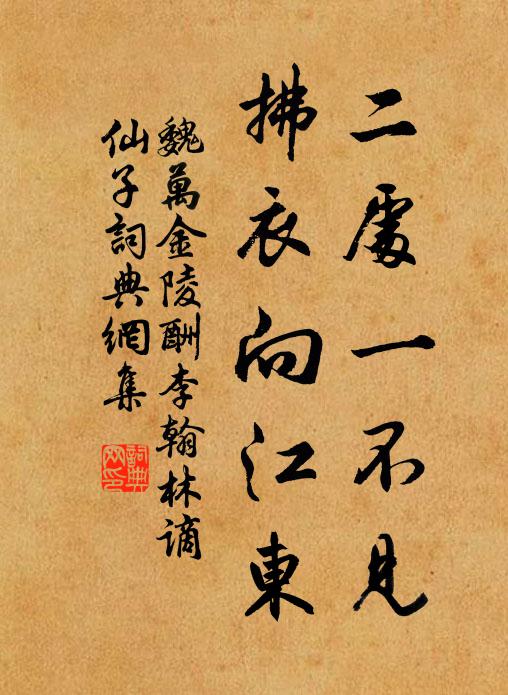 二處一不見
拂衣向江東
魏萬金陵酬李翰林謫
仙子詞典網集
詞典
网印